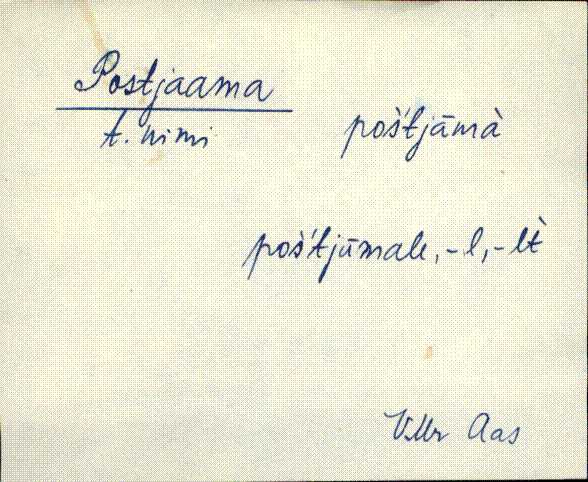 Postjaama
t. nimi
poš't́jāmà
poš't́jāmale, -l, -lt̀
V.Mr Aas